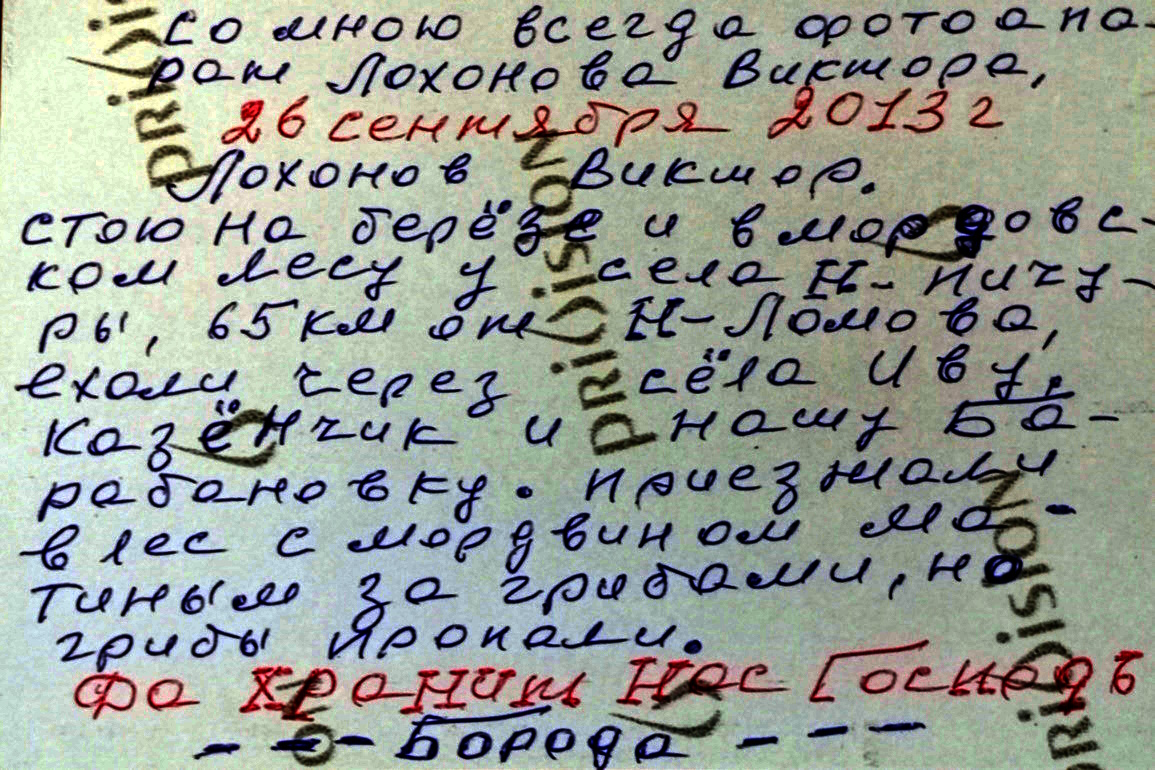 со мною всегда фотоапа-
рат Лохонова Виктора,
26 сентября 2013 г
Лохонов Виктор.
стою на берёзе и в мордовс-
ком лесу у села Н-Пичу-
ры, 65 км от Н-Ломова,
ехали через сёла Иву,
Казёнчик и нашу Ба-
рабановку. Приезжали
в лес с мордвином Ма-
тиным за грибами, но
грибы пропали.
Да Хранит Нас Господь
- - - Борода - - -